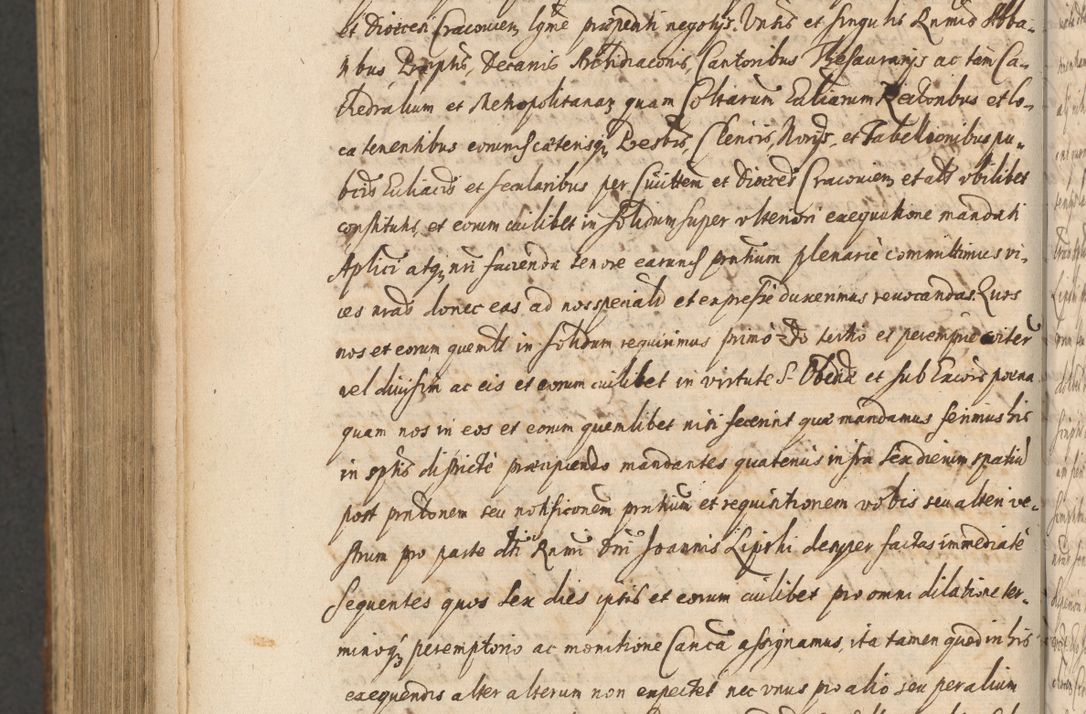 et Dioecesi Cracovien, lgme præpenti negotijs. Untis et singulis Rndmis Abba-
tibus Præptis, Decanis Archidiaconis, Cantoribus Thesaurarijs ac tam Ca-
thedralium et Metropolitanaz quam Colltarum Ecliarum Rectoribus et lo-
ca tenentibus eorumq cæterisq, Presbris, Clericis, Norijs, et Tabellionibus pu-
bcis Eccliacis et secularibus per Civittem et Dioeces Cracovien, et als ubilibet
constitutis, et eorum cuilibet in solidum super ulteriori exequutione mandati
Aplici atq, nri facienda tenore earund pntium plenarie committimus vi-
ces nras donec eas ad nos speciali et expresse duxerimus revocandas. Quos
nos et eorum quemlt in solidum requirimus primo 2do tertio et peremptrie coniter
vel divisim ac eis et eorum cuilibet in virtute S. Obedæ et sub Excois poena
quam nos in eos et eorum quemlibet nisi fecerint quæ mandamus ferimus his
in sptis districte præcipiendo mandantes quatenus infra sex dierum spatiu
post pntonem seu notificonem pntium et requisitionem vobis seu alteri ve-
strum pro parte dti Rndmi Dni Joannis Lipski desuper factas immediate
sequentes quos sex dies ipsis et eorum cuilibet pro omni dilatione ter-
minoq, peremptorio ac monitione Canca assignamus, ita tamen quod in his
exequendis alter alterum non expectet nec unus pro alio seu per alium